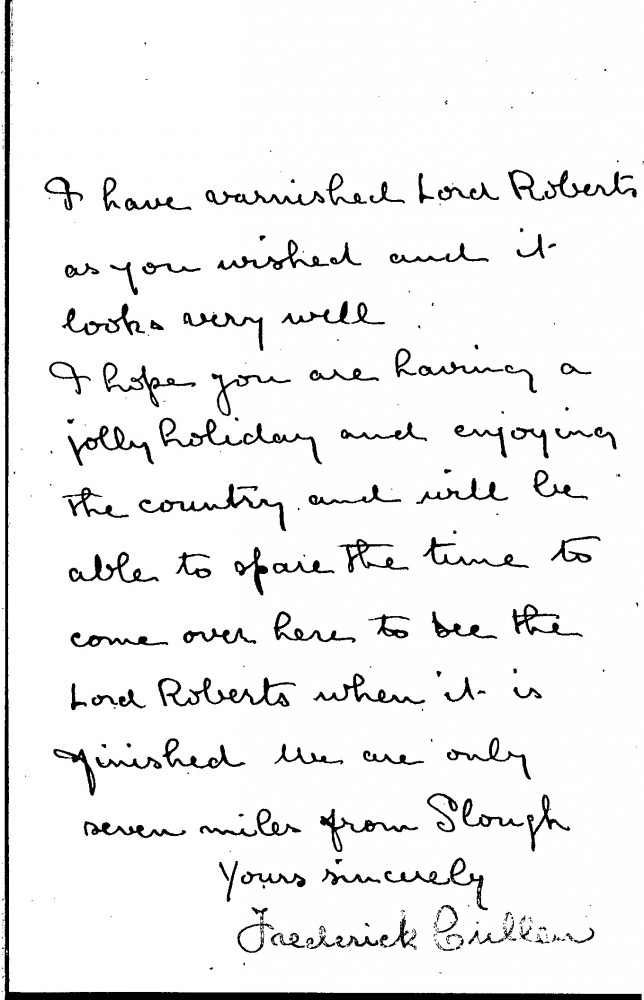 I have varnished Lord Roberts
as you wished and it
looks very well.
I hope you are having a
jolly holiday and enjoying
the country and will be
able to spare the time to
come over here to see the
Lord Roberts when it is
finished We are only
seven miles from Slough
Yours sincerely
Frederick Cullen